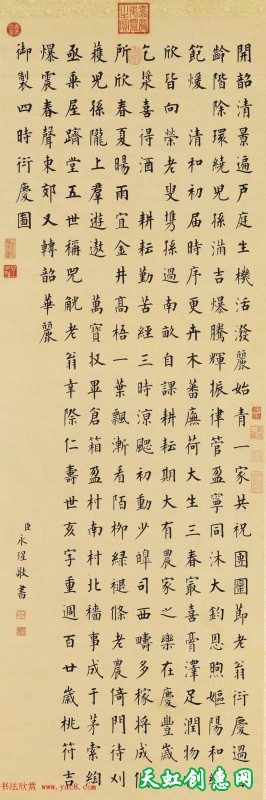 開韶清景遍戶庭生機活潑麗始青一家共祝團圞節老翁衍慶過
齡階除環繞兒孫滿吉爆騰輝振律管盈寧同沐大鈞恩煦嫗陽和
飽煖 清和初屆時序更卉木蕃廡荷大生三春最喜膏澤足潤物
欣皆向榮老叟攜孫過南畝自課耕耘期大有農家之樂在慶豐歲
乞漿喜得酒 耕耘勤苦經三時涼颸初動少皥司西疇多稼將成
所欣春夏暘雨宜金井高梧一葉飄漸看陌柳綠褪條老農倚門待刈
穫兒孫隴上羣遊遨 萬寶收畢倉箱盈村南村北穡事成于茅索綯
亟乘屋躋堂五世稱兕觥老翁幸際仁壽世亥字重週百廿歲桃符吉
爆震春聲東郊又轉韶華麗
御製四時衍慶圖
臣永瑆敬書
书法欣赏 www.yac8.com
天虹创意网